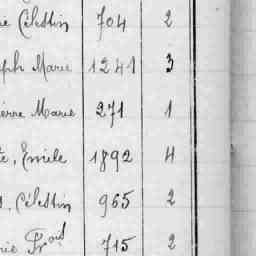 ie Célestin 704 2
eph Marie 1241 3
ierre Marie 271 1
te, Emile 1892 4
s, Célestin 965 2
rie Frois 715 2